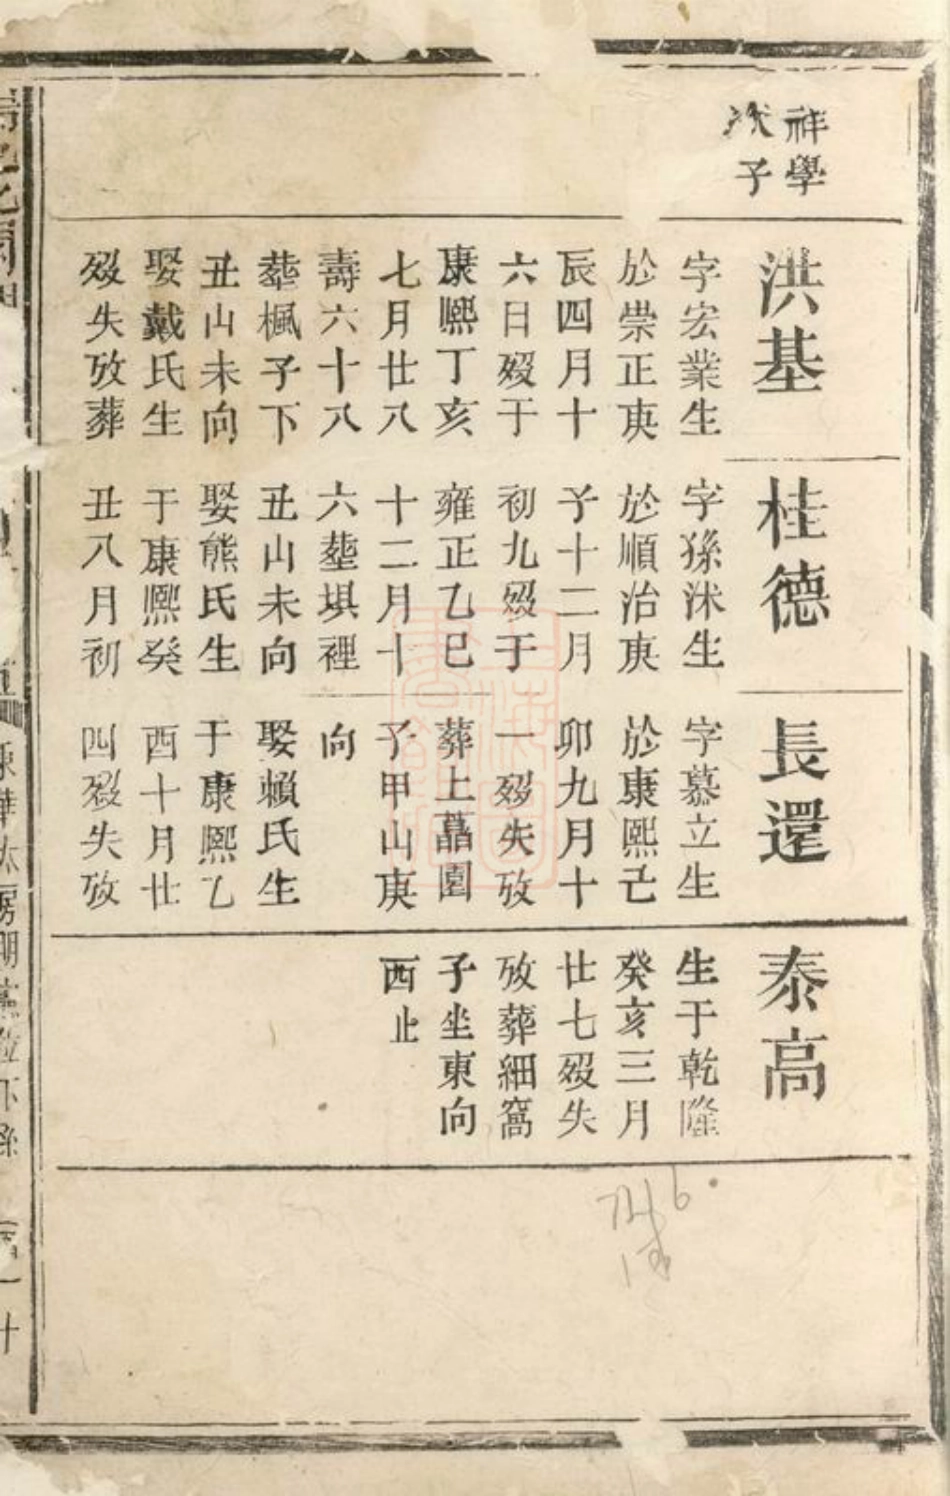 祥學
次子
洪基
字宏業生
於崇正庚
辰四月十
六日歿于
康熙丁亥
七月廿八
壽六十八
塟楓子下
丑山未向
娶戴氏生
歿失攷葬
桂德
字孫沭生
於順治庚
子十二月
初九歿于
雍正乙巳
十二月十
六塟埧裡
丑山未向
娶熊氏生
于康熙癸
丑八月初
長還
字慕立生
於康熙己
卯九月十
一歿失攷
葬上藠園
子甲山庚
向
娶賴氏生
于康熙乙
酉十月廿
四歿失攷
泰高
生于乾隆
癸亥三月
廿七歿失
攷葬細窩
子坐東向
西止